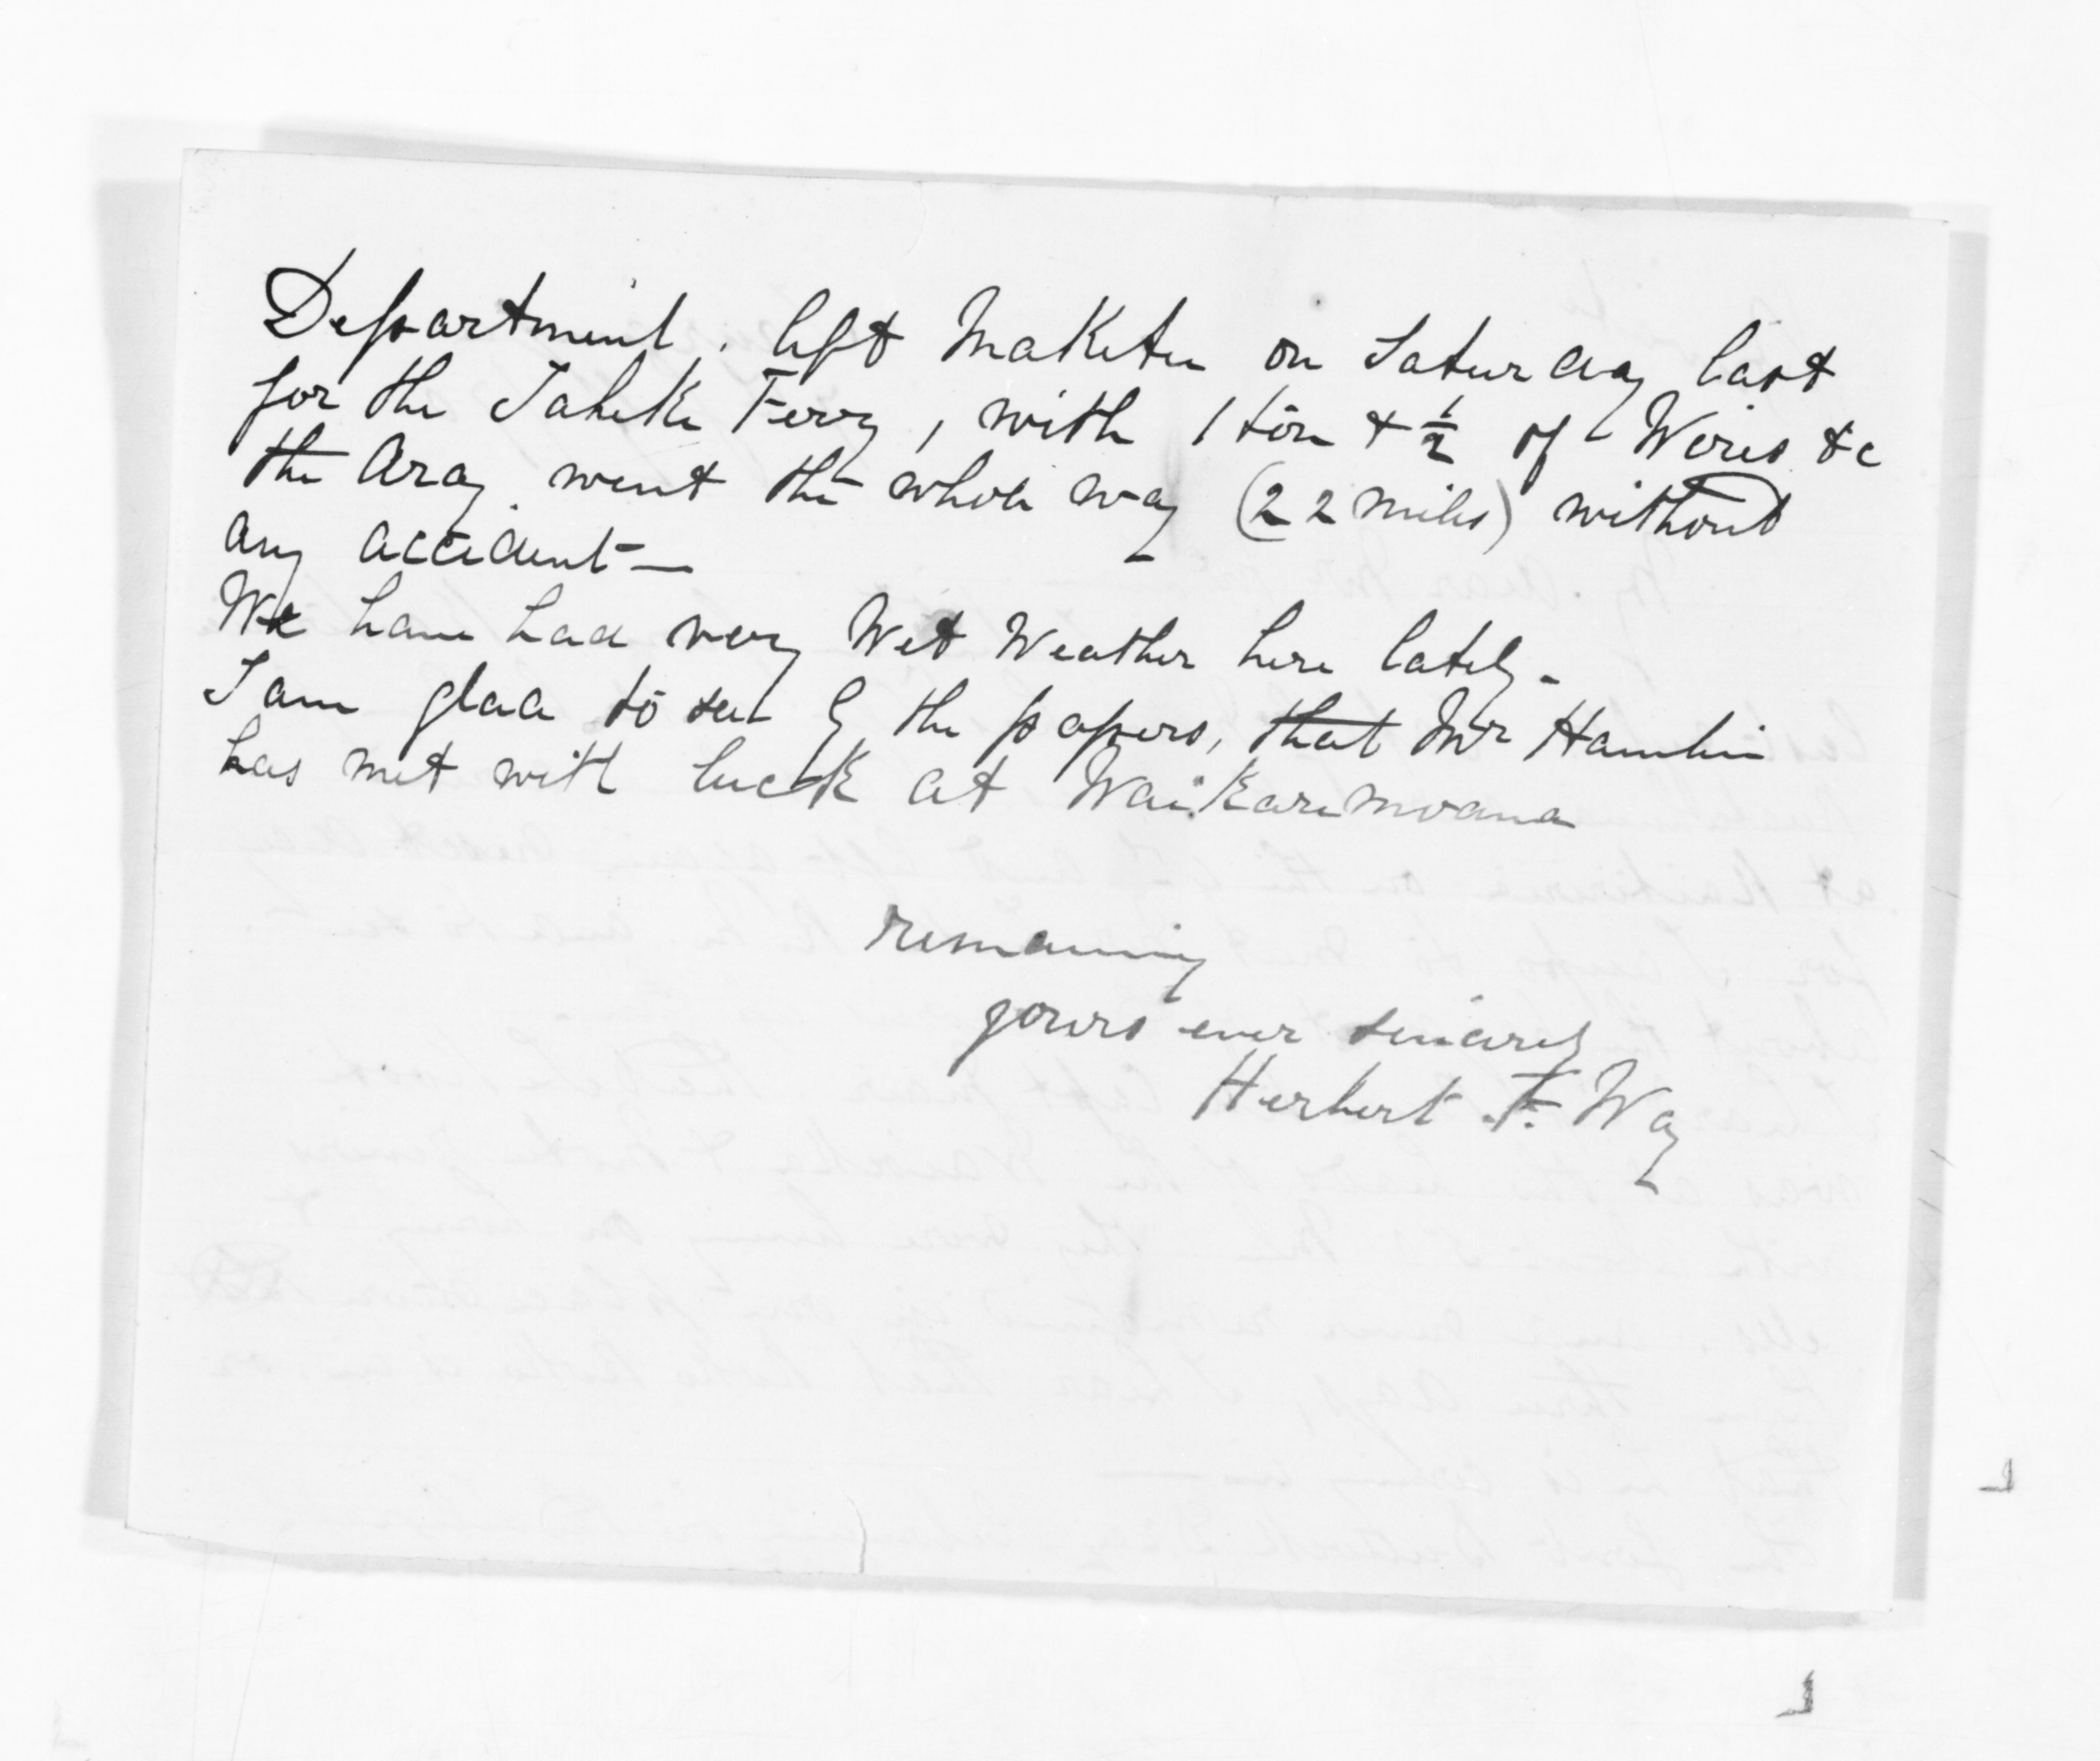 Department, left Maketu on Saturday last
for the Taheke Ferry, with 1 ton & ½ of Wires &c
the dray went the whole way (22 miles) without
any accident —
We have had very Wet Weather here lately -
I am glad to see by the papers, that Mr Hamlin
has met with luck at Waikaremoana
remaining
yours ever sincerely
Herbert F. Way